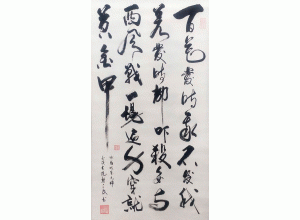 百花發時我不發我
若發時都吓殺要与
西風戰一場遍身穿就
黄金甲